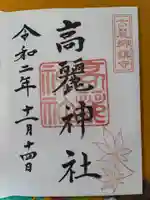 高麗神社
令和二年十二月十四日